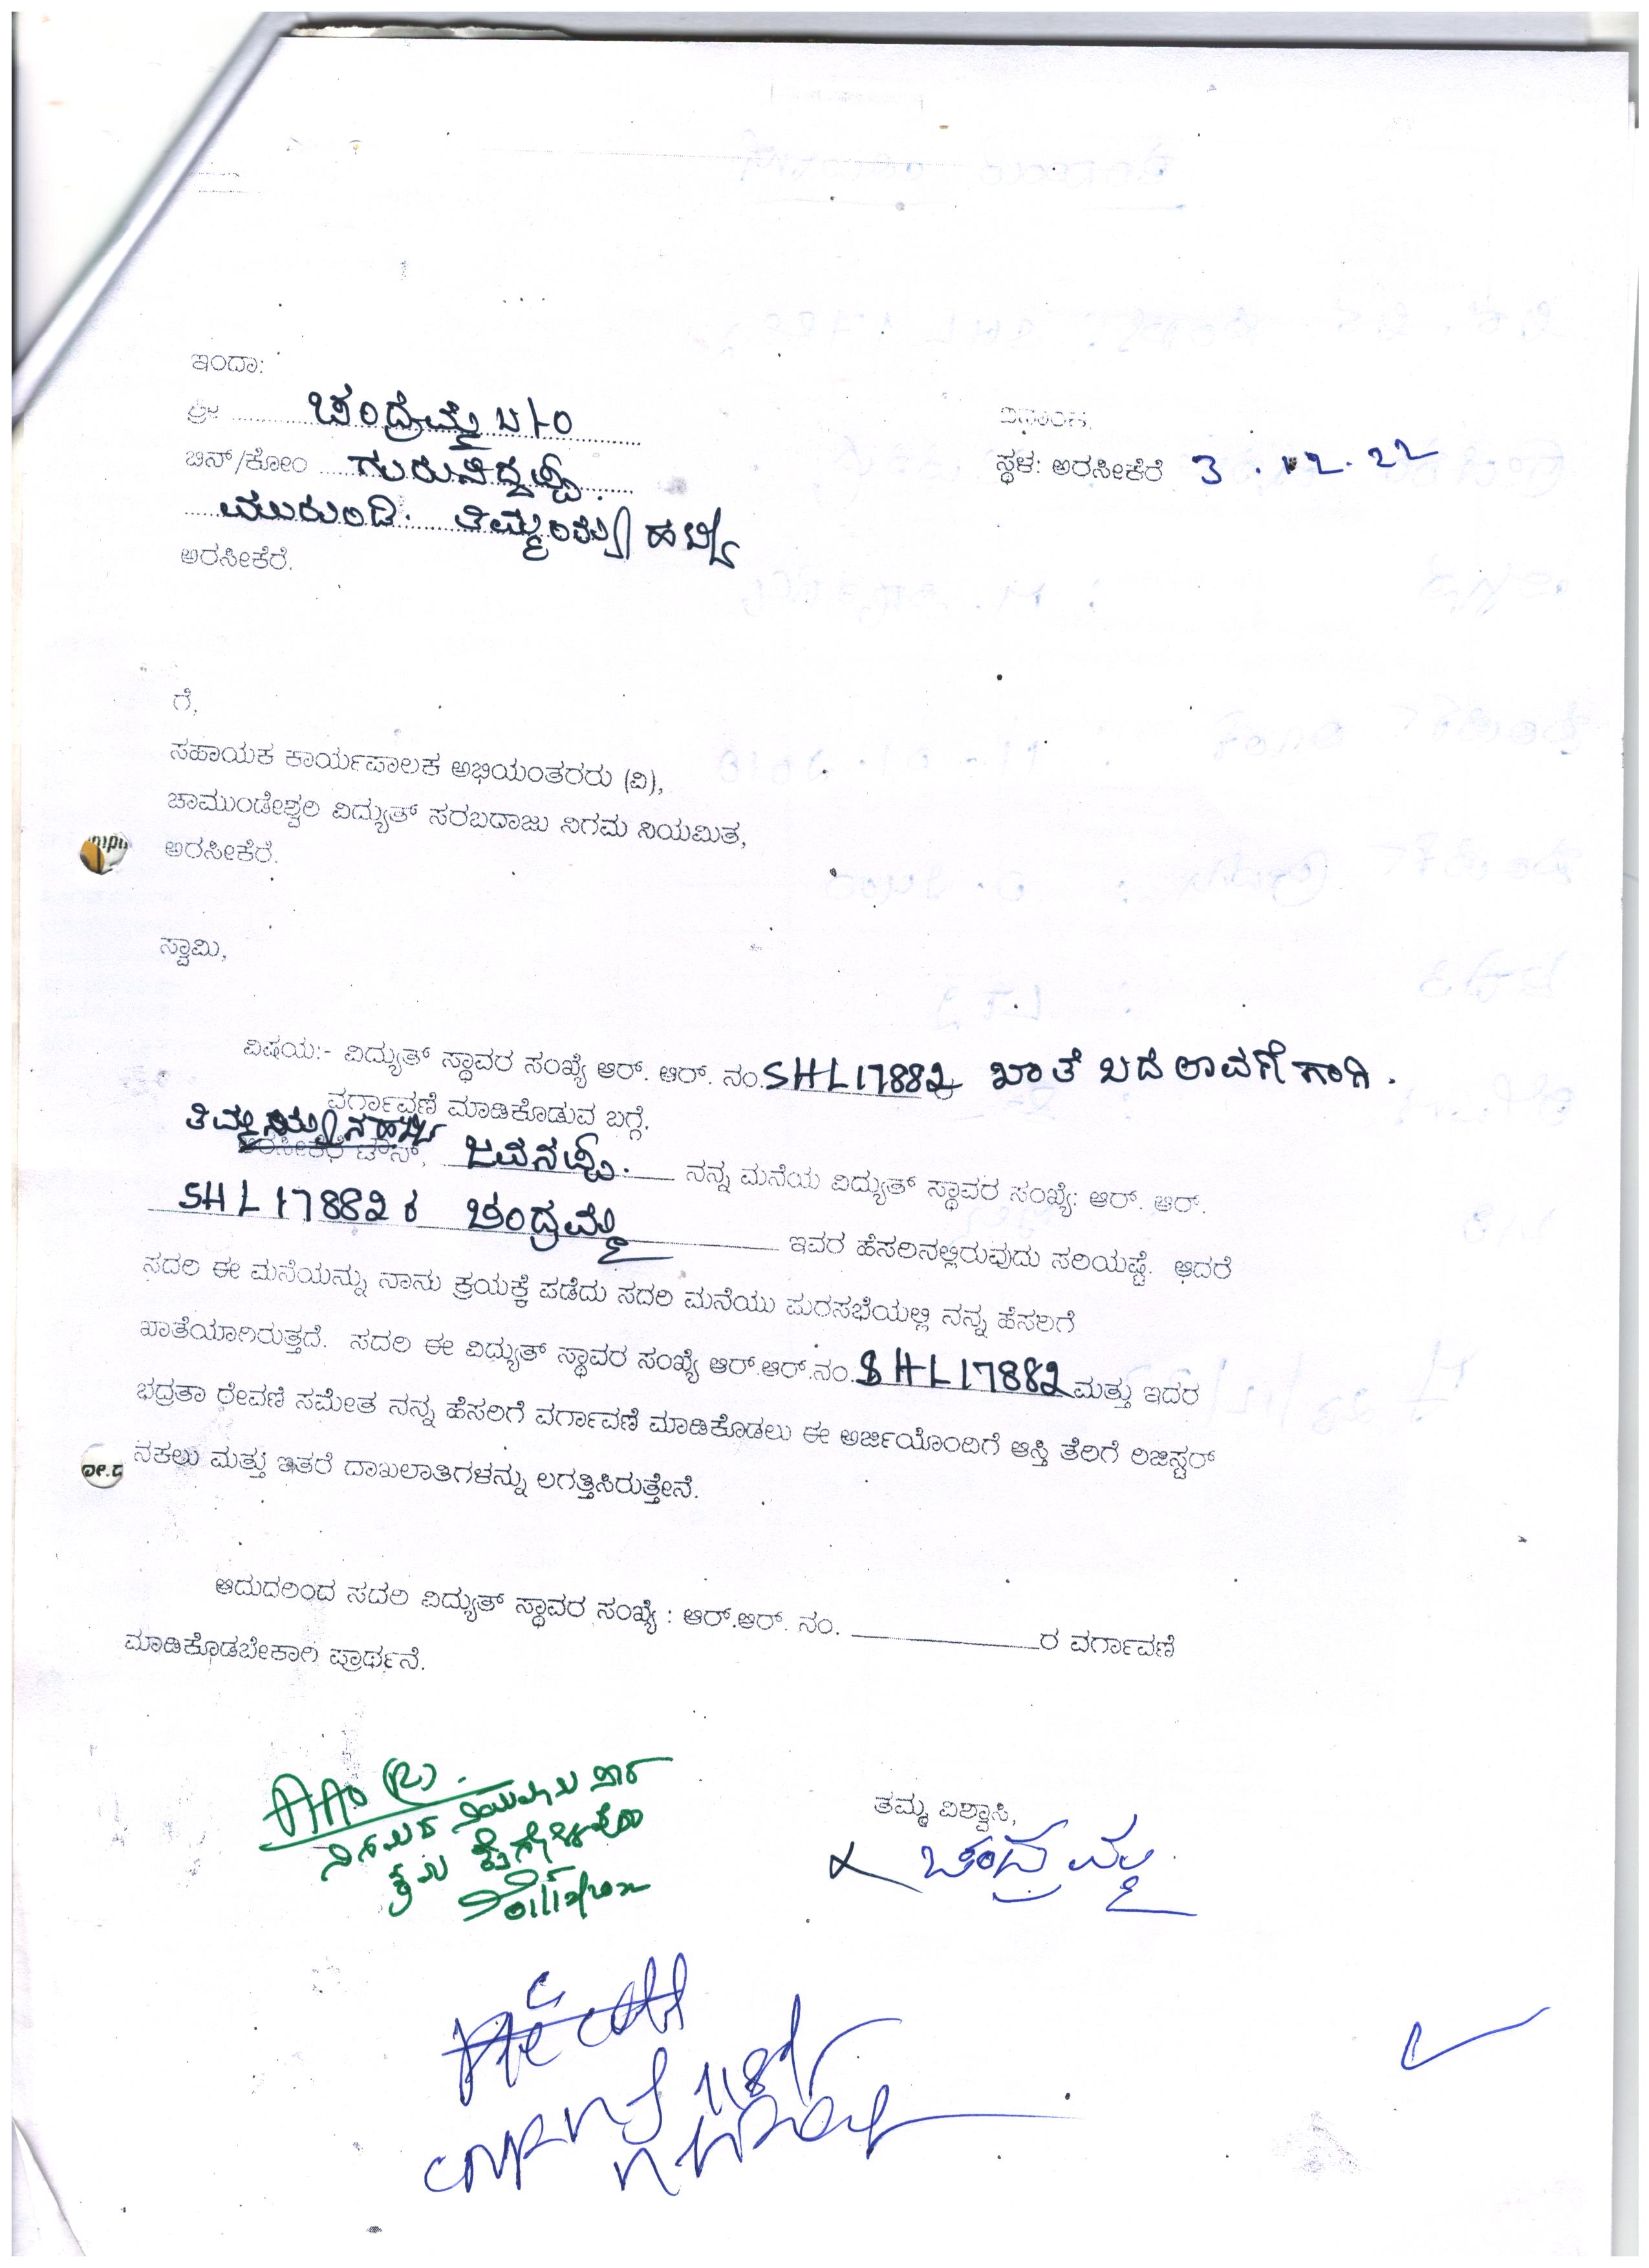 ಇಂದಾ:
ಶ್ರೀ ಚಂದ್ರಮ್ಮ W/O
ಬಿನ್/ಕೋಂ ಗುರುಸಿದ್ದಪ್ಪ.
ದಿನಾಂಕ:
ಸ್ಥಳ: ಅರಸೀಕೆರೆ 3.12.22
ಮುರುಂಡಿ. ತಿಮ್ಮಯ್ಯನ ಹಟ್ಟಿ
ಅರಸೀಕೆರೆ.
ಗೆ,
ಸಹಾಯಕ ಕಾರ್ಯಪಾಲಕ ಅಭಿಯಂತರರು (ವಿ),
ಚಾಮುಂಡೇಶ್ವರಿ ವಿದ್ಯುತ್ ಸರಬರಾಜು ನಿಗಮ ನಿಯಮಿತ,
ಅರಸೀಕೆರೆ.
ಸ್ವಾಮಿ,
ವಿಷಯ:- ವಿದ್ಯುತ್ ಸ್ಥಾವರ ಸಂಖ್ಯೆ ಆರ್. ಆರ್. ನಂ.SHL17882 ಖಾತೆ ಬದಲಾವಣೆಗಾಗಿ.
ವರ್ಗಾವಣೆ ಮಾಡಿಕೊಡುವ ಬಗ್ಗೆ.
ತಿಮ್ಮಯ್ಯನಹಟ್ಟಿ
ಅರಸೀಕೆರೆ ಟೌನ್, ಜವನಪ್ಪ. ನನ್ನ ಮನೆಯ ವಿದ್ಯುತ್ ಸ್ಥಾವರ ಸಂಖ್ಯೆ: ಆರ್. ಆರ್.
SHL17882 ರ ಚಂದ್ರಮ್ಮ ಇವರ ಹೆಸರಿನಲ್ಲಿರುವುದು ಸರಿಯಷ್ಟೆ. ಆದರೆ
ಸದರಿ ಈ ಮನೆಯನ್ನು ನಾನು ಕ್ರಯಕ್ಕೆ ಪಡೆದು ಸದರಿ ಮನೆಯು ಪುರಸಭೆಯಲ್ಲಿ ನನ್ನ ಹೆಸರಿಗೆ
ಖಾತೆಯಾಗಿರುತ್ತದೆ. ಸದರಿ ಈ ವಿದ್ಯುತ್ ಸ್ಥಾವರ ಸಂಖ್ಯೆ ಆರ್.ಆರ್.ನಂ.SHL17882 ಮತ್ತು ಇದರ
ಭದ್ರತಾ ಠೇವಣಿ ಸಮೇತ ನನ್ನ ಹೆಸರಿಗೆ ವರ್ಗಾವಣೆ ಮಾಡಿಕೊಡಲು ಈ ಅರ್ಜಿಯೊಂದಿಗೆ ಆಸ್ತಿ ತೆರಿಗೆ ರಿಜಿಸ್ಟರ್
ನಕಲು ಮತ್ತು ಇತರೆ ದಾಖಲಾತಿಗಳನ್ನು ಲಗತ್ತಿಸಿರುತ್ತೇನೆ.
ಆದುದರಿಂದ ಸದರಿ ವಿದ್ಯುತ್ ಸ್ಥಾವರ ಸಂಖ್ಯೆ : ಆರ್.ಆರ್. ನಂ. ____________ರ ವರ್ಗಾವಣೆ
ಮಾಡಿಕೊಡಬೇಕಾಗಿ ಪ್ರಾರ್ಥನೆ.
AAO (R).
ತಮ್ಮ ವಿಶ್ವಾಸಿ,
ಚಂದ್ರಮ್ಮ